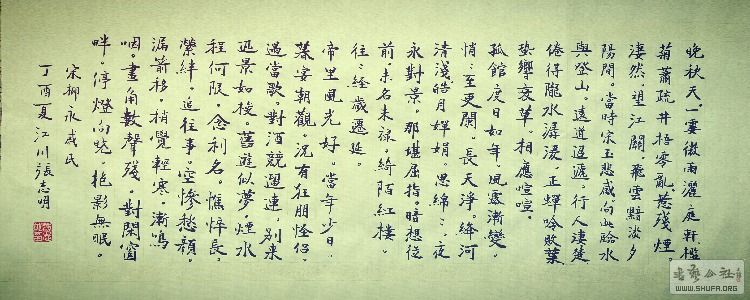 晚秋天。一霎微雨灑庭軒。檻
菊蕭疏。井梧零亂惹殘煙。
淒然。望江關。飛雲黯淡夕
陽閒。當時宋玉悲感。向此臨水
與登山。遠道迢遞。行人淒楚
倦得隴水潺湲。正蟬吟敗葉
蛩響衰草。相應喧喧。
孤館度日如年。風露漸變。
悄々至更闌。長天淨。絳河
清淺。皓月嬋娟。思綿々。夜
永對景。那堪屈指。暗想從
前。未名未祿。綺陌紅樓。
往々經歲遷延。
帝里風光好。當年少日。
暮宴朝歡。況有狂朋怪侶。
遇當歌。對酒競留連。別來
迅景如梭。舊遊似夢。煙水
程何限。念利名。憔悴長。
縈絆。追往事。空慘愁顏。
漏箭移。稍覺輕寒。漸嗚
咽。畫角數聲殘。對閒窗
畔。停燈向曉。抱影無眠。
宋柳永戚氏
丁酉夏江川張志明
书艺公社
WWW.SHUFA.ORG